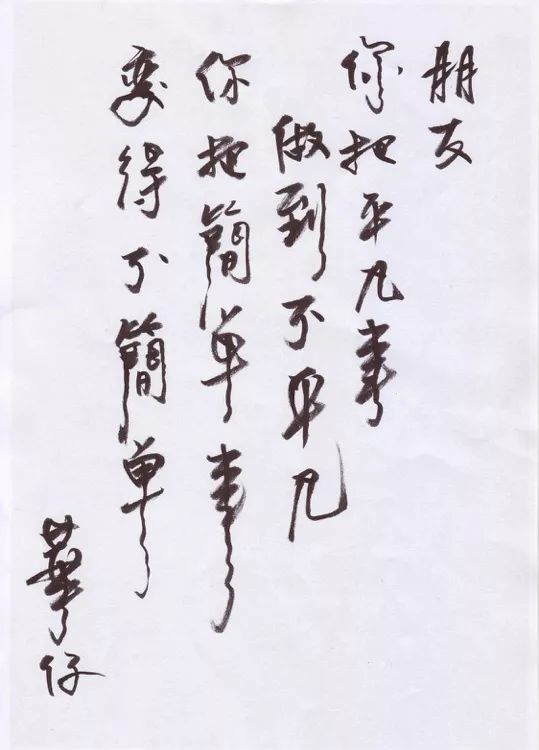 朋友
你把平凡事
做到不平凡
你把簡单事
变得不簡单
華仔